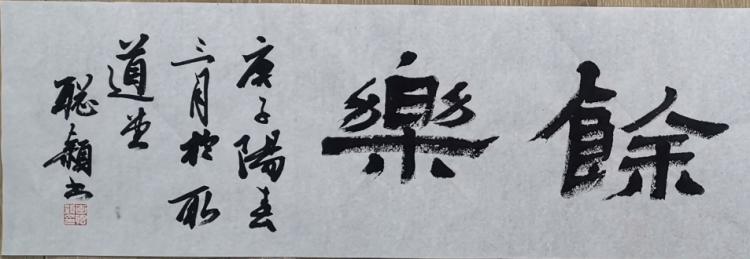 餘樂
庚子陽春
三月於取
道堂
聪颖书